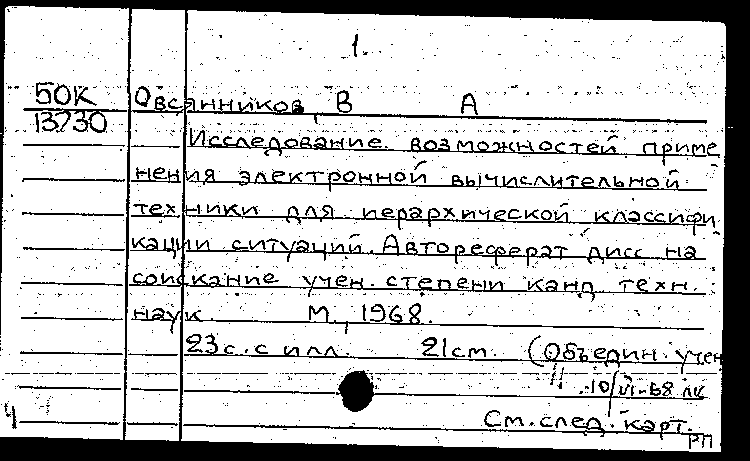 1.
50К Овсянников, В А
13730
Исследование возможностей приме
нения электронной вычислительной
техники для иерархической классифи
кации ситуаций. Автореферат дисс на
соискание учен. степени канд техн.
наук. М., 1968.
23с. с илл. 21см. (Объедин. учен
10/VI-68 лк
См. след. карт.
РП